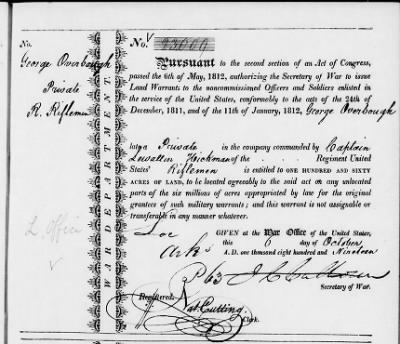 No.
George Overbaugh
Private
R. Riflemen
WAR DEPARTMENT.
No. 23009
Pursuant to the second section of an Act of Congress,
passed the 6th of May, 1812, authorizing the Secretary of War to issue
Land Warrants to the noncommissioned Officers and Soldiers enlisted
in the service of the United States, conformably to the acts of the 24th of
December, 1811, and of the 11th of January, 1812, George Overbaugh
late a Private in the company commanded by Captain
Lewellin Hickman of the Regiment United
States' Riflemen is entitled to ONE HUNDRED AND SIXTY
ACRES OF LAND, to be located agreeably to the said act on any unlocated
parts of the six millions of acres appropriated by law for the original
grantees of such military warrants; and this warrant is not assignable
or transferable in any manner whatever.
Loc
Arks
GIVEN at the War Office of the United States,
this 6 day of October
A. D. one thousand eight hundred and Nineteen
P 63 J C Calhoun
Secretary of War.
Registered,
Nat. Cutting
Clerk.
L. Office